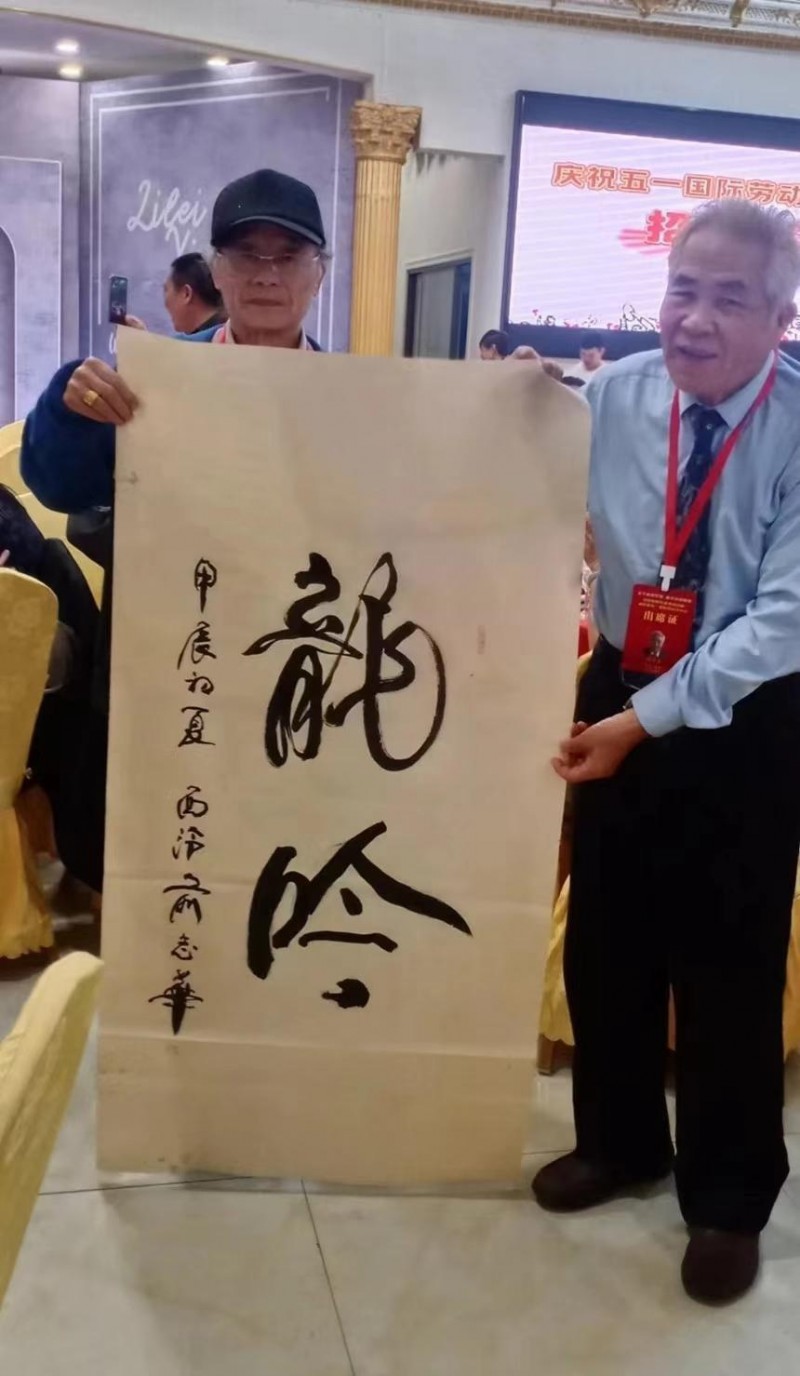 Lilei
庆祝五一国际劳动
招
出席证
龍吟
甲辰初夏 西泠俞志華